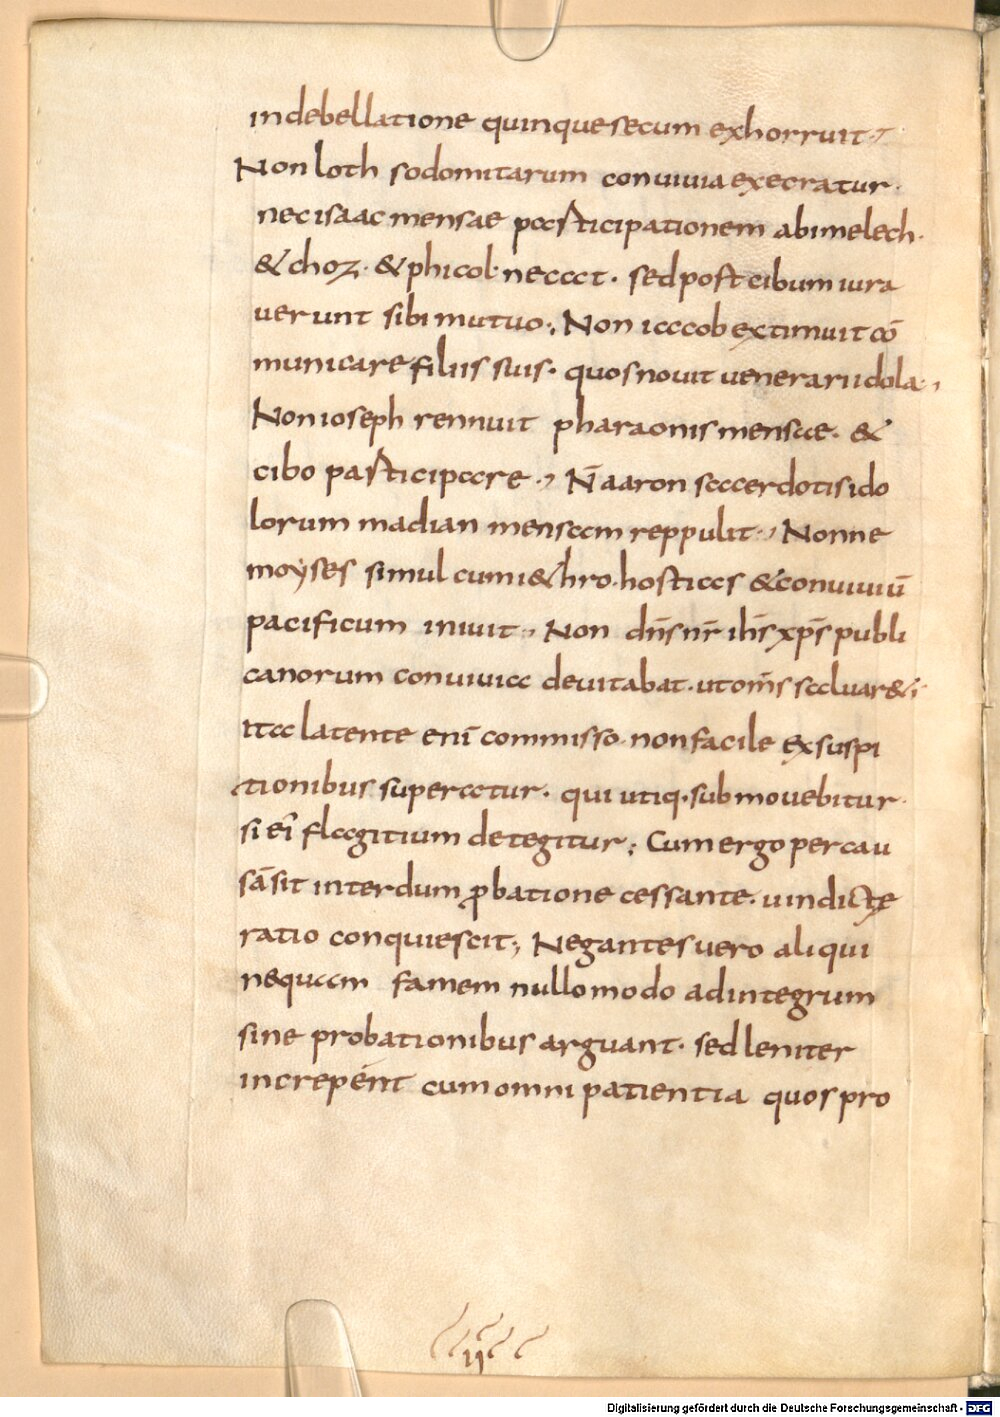 in debellatione quinque secum exhorruit·,
Non loth sodomitarum conuiuia execratur·
nec isaac mensae participationem abimelech·
& choz· & phicol· necat· sed post cibum iura
uerunt sibi mutuo·, Non iacob extimuit cō
municare filiis suis· quos nouit uenerari idola·,
Non ioseph rennuit pharaonis mensae· &
cibo participare·, N̄ aaron sacerdotis ido
lorum madian mensam reppulit·, Nonne
moyses simul cum i&hro· hostias & conuiuiū
pacificum iniuit·, Non dn̄s nr̄ ih̄s xp̄s publi
canorum conuiuia deuitabat· ut om̄s saluar&·,
ita latente enī commisso· non facile ex suspi
tionibus superatur· qui utiq· submouebitur·
si eī flagitium detegitur; Cum ergo per cau
sā sit interdum ꝓbatione cessante· uindictę
ratio conquiescit·, Negantes uero aliqui
nequam famem nullo modo ad integrum
sine probationibus arguant· sed leniter
increpent cum omni patientia quos pro
ii
Digitalisierung gefördert durch die Deutsche Forschungsgemeinschaft - DFG